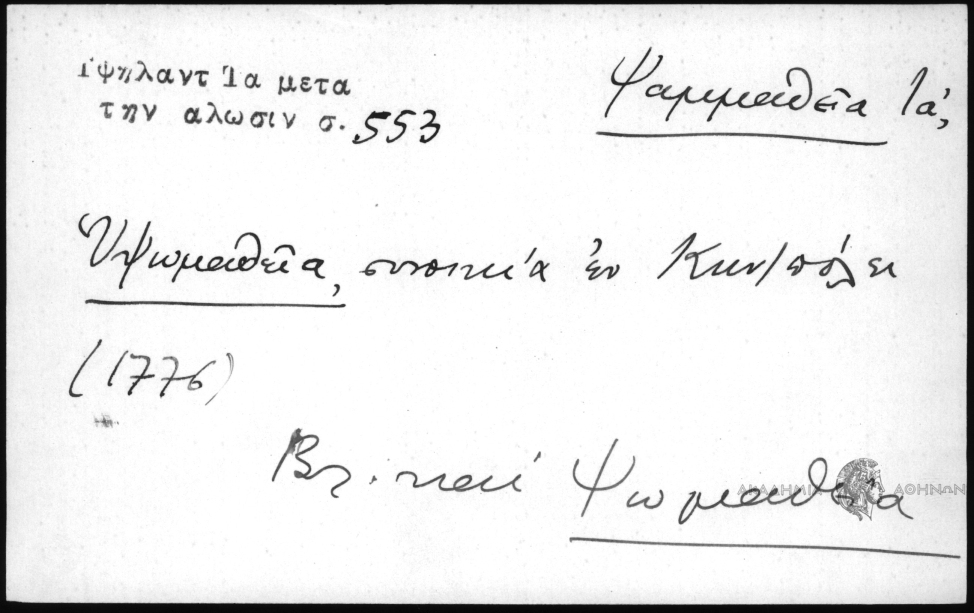 Ὑψηλαντ Τα μετα
την αλωσιν σ. 553
Ψαμμαθεῖα Τά,
Ὑψωμαθεῖα, συνοικία ἐν Κων/πόλει
(1776)
Βλ. καί Ψωμαθεῖα
ΑΚΑΔΗΜΙΑ ΑΘΗΝΩΝ